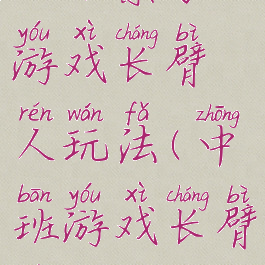 yóu xì cháng bì
游戏长臂
rén wán fǎ zhōng
人玩法(中
bān yóu xì cháng bì
班游戏长臂